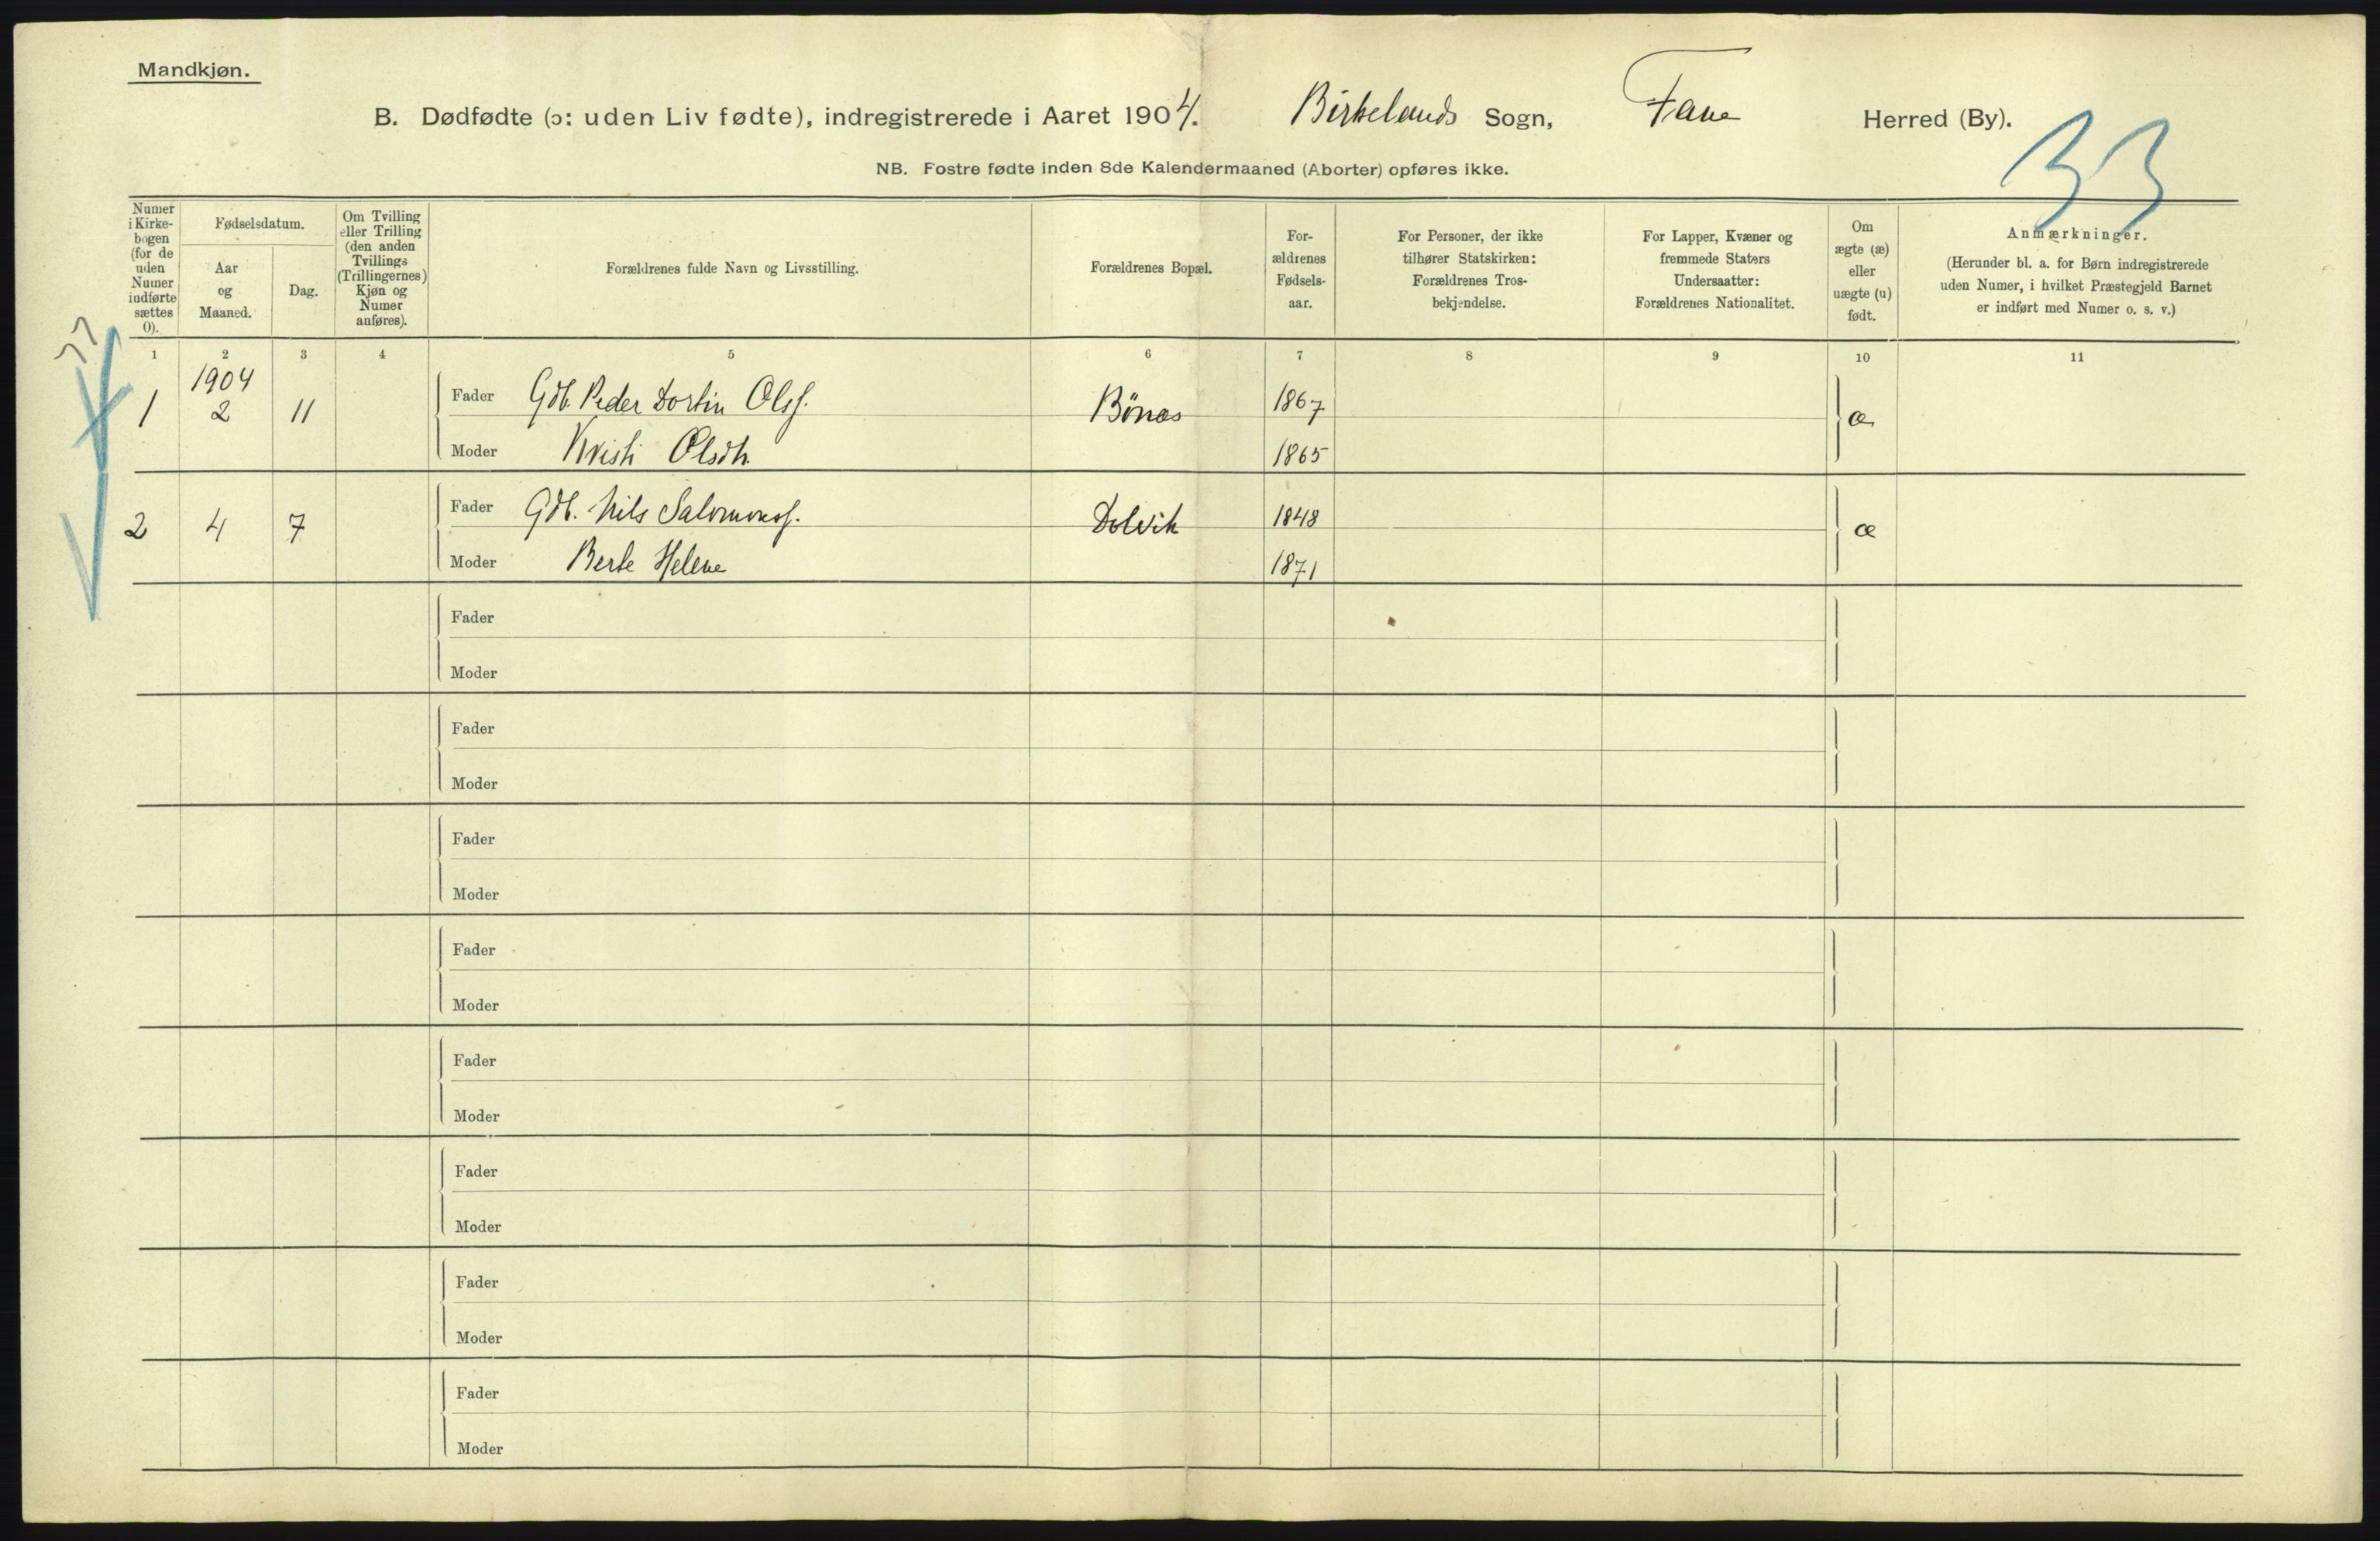 Mandkjøn.
B. Dødfødte (ɔ: uden Liv fødte), indregistrerede i Aaret 1904. Birkelands Sogn, Fane Herred (By).
33
NB. Fostre fødte inden 8de Kalendermaaned (Aborter) opføres ikke.
Numer i Kirke-bogen (for de uden Numer indførte sættes 0).
Fødselsdatum.
Aar og Maaned.
Dag.
Om Tvilling eller Trilling (den anden Tvillings (Trillingernes) Kjøn og Numer anføres).
Forældrenes fulde Navn og Livsstilling.
Forældrenes Bopæl.
For-ældrenes Fødsels-aar.
For Personer, der ikke tilhører Statskirken: Forældrenes Tros-bekjendelse.
For Lapper, Kvæner og fremmede Staters Undersaatter: Forældrenes Nationalitet.
Om ægte (æ) eller uægte (u) født.
Anmærkninger.
(Herunder bl. a. for Børn indregistrerede uden Numer, i hvilket Præstegjeld Barnet er indført med Numer o. s. v.)
1 2 3 4 5 6 7 8 9 10 11
1904
1 2 11 Fader Gdb. Peder Dortin Olss. Bönes 1867 æ
Moder Kristi Olsdtr. 1865
2 4 7 Fader Gdb. Nils Salomonss. Dolvik 1848 æ
Moder Berte Helene 1871
Fader
Moder
Fader
Moder
Fader
Moder
Fader
Moder
Fader
Moder
Fader
Moder
Fader
Moder
Fader
Moder